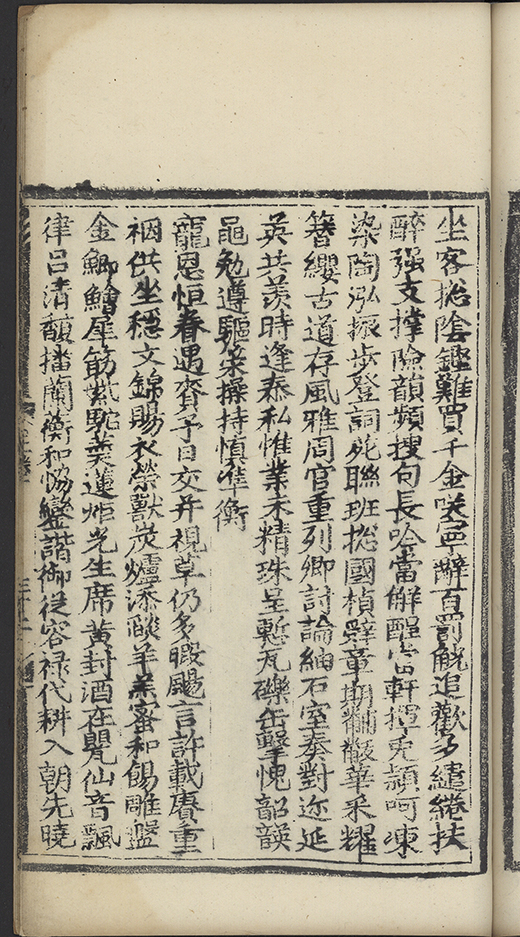 坐客揔陰鏗難買千金咲寧辭百罰觥追歡多繾綣扶
醉强支撑險韻頻搜句長吟當解酲當軒揮兎頴呵凍
染陶泓振歩登詞苑聯班揔國楨辭章期黼黻華采耀
簪纓古道存風雅周官重列卿討論紬石室奏對迩延
英共羡時逢泰私惟業未精珠呈慙瓦礫缶擊愧韶韺
黽勉遵驅策操持慎凖衡
寵恩恒眷遇賚予日交并視草仍多暇颺言許載賡重
裀供坐穩文錦賜衣榮獸炭爐添酸羊羔蜜和餳雕盤
金鯽鱠犀筯紫駝羮蓮炬先生席黄封酒在甖仙音飄
律吕清馥播蘭蘅和恊鑾諧御從容禄代耕入朝先曉